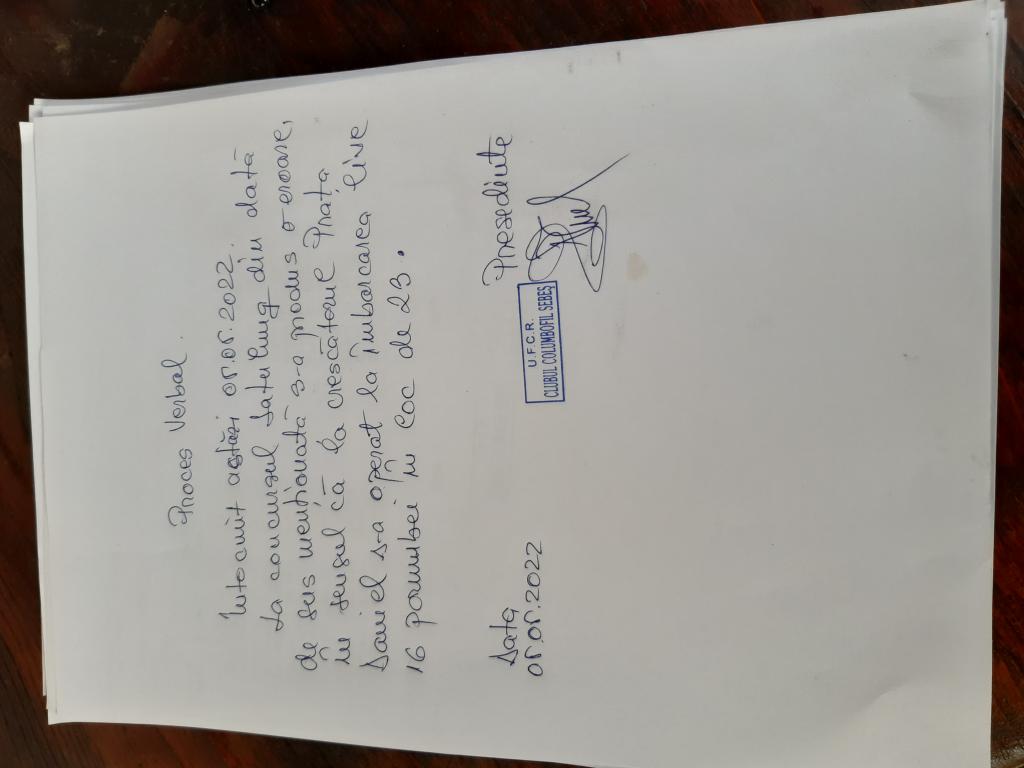 Proces Verbal.
Întocmit astăzi 05.05.2022.
La concursul din dată
de sus menționată s-a produs o eroare,
în sensul că la crescătorul Prața
Daniel s-a operat la îmbarcarea live
16 porumbei în loc de 23.
Data Președinte
05.05.2022
U.F.C.R.
CLUBUL COLUMBOFIL SEBEȘ